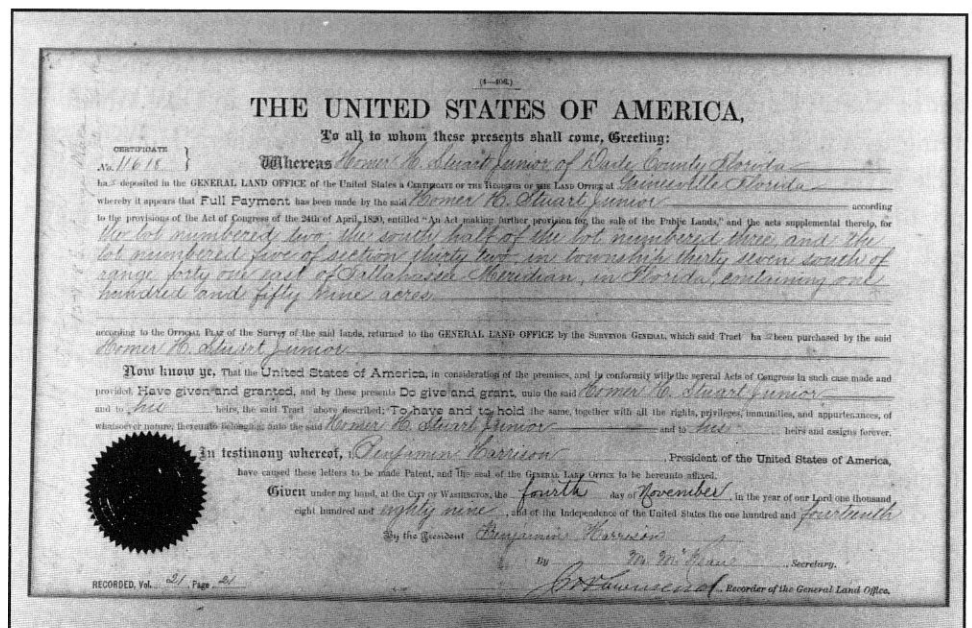 (4—406.)
THE UNITED STATES OF AMERICA,
To all to whom these presents shall come, Greeting:
CERTIFICATE
No. 11618 } Whereas Homer H. Stuart Junior of Dade County Florida
has deposited in the GENERAL LAND OFFICE of the United States a CERTIFICATE OF THE REGISTER OF THE LAND OFFICE at Gainesville Florida
whereby it appears that Full Payment has been made by the said Homer H. Stuart Junior according
to the provisions of the Act of Congress of the 24th of April, 1820, entitled "An Act making further provision for the sale of the Public Lands," and the acts supplemental thereto, for
the lot numbered two, the south half of the lot numbered three, and the
lot numbered five of section thirty two, in township thirty seven south of
range forty one east of Tallahassee Meridian, in Florida, containing one
hundred and fifty nine acres
according to the OFFICIAL PLAT of the Survey of the said lands, returned to the GENERAL LAND OFFICE by the SURVEYOR GENERAL, which said Tract has been purchased by the said
Homer H. Stuart Junior
Now know ye, That the United States of America, in consideration of the premises, and in conformity with the several Acts of Congress in such case made and
provided, Have given and granted, and by these presents Do give and grant, unto the said Homer H. Stuart Junior
and to his heirs, the said Tract above described; To have and to hold the same, together with all the rights, privileges, immunities, and appurtenances, of
whatsoever nature, thereunto belonging, unto the said Homer H. Stuart Junior and to his heirs and assigns forever.
In testimony whereof, I, Benjamin Harrison, President of the United States of America,
have caused these letters to be made Patent, and the seal of the GENERAL LAND OFFICE to be hereunto affixed.
Given under my hand, at the CITY OF WASHINGTON, the fourth day of November, in the year of our Lord one thousand
eight hundred and eighty nine, and of the Independence of the United States the one hundred and fourteenth
By the President Benjamin Harrison
By M. McKean, Secretary.
RECORDED, Vol. 21, Page 21 Townsend, Recorder of the General Land Office.